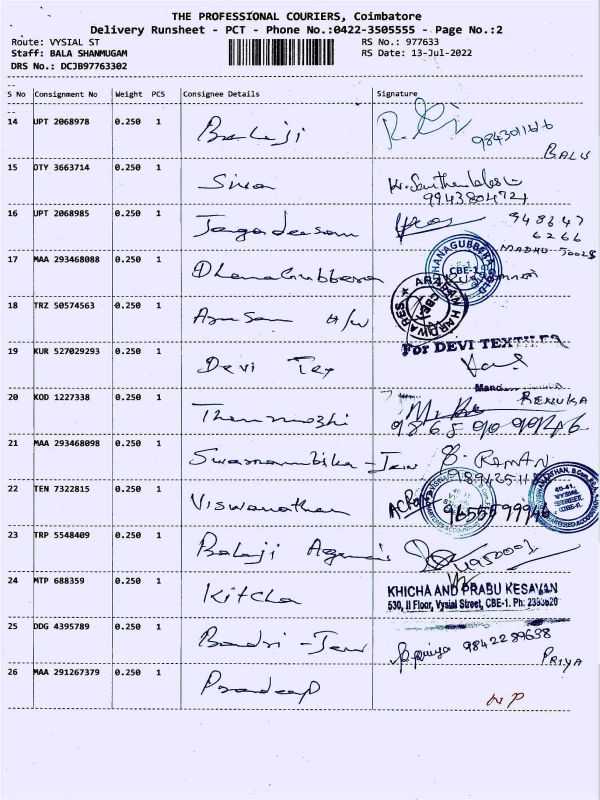 THE PROFESSIONAL COURIERS, Coimbatore
Delivery Runsheet - PCT - Phone No.:0422-3505555 - Page No.:2
Route: VYSIAL ST RS No.: 977633
Staff: BALA SHANMUGAM RS Date: 13-Jul-2022
DRS No.: DCJB97763302
S No Consignment No Weight PCS Consignee Details Signature
14 UPT 2068978 0.250 1 Balaji
BALU
15 DTY 3663714 0.250 1 Siva
9943804721
16 UPT 2068985 0.250 1 Jagadeesan 948647
6266
MADHU TOOLS
17 MAA 293468088 0.250 1 DhanaGubbera
CBE-1
18 TRZ 50574563 0.250 1 H/W
HARDWARES
19 KUR 527029293 0.250 1 Devi Tex
For DEVI TEXTILES
20 KOD 1227338 0.250 1 Thenmozhi RENUKA
21 MAA 293468098 0.250 1 Swarnambika - Jew
22 TEN 7322815 0.250 1 Viswanathan 9655599946
40-41,
VYSIAL
STREET,
CBE-1.
23 TRP 5548409 0.250 1 Balaji
24 MTP 688359 0.250 1 Kitcha
KHICHA AND PRABU KESAVAN
530, II Floor, Vysial Street, CBE-1. Ph: 2393620
25 DDG 4395789 0.250 1 Badri - Jew 9842289688
PRIYA
26 MAA 291267379 0.250 1 Pradeep
NP